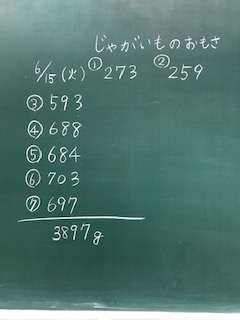 じゃがいものおもさ
6/15(火) ① 273 ② 259
③ 593
④ 688
⑤ 684
⑥ 703
⑦ 697
3897g